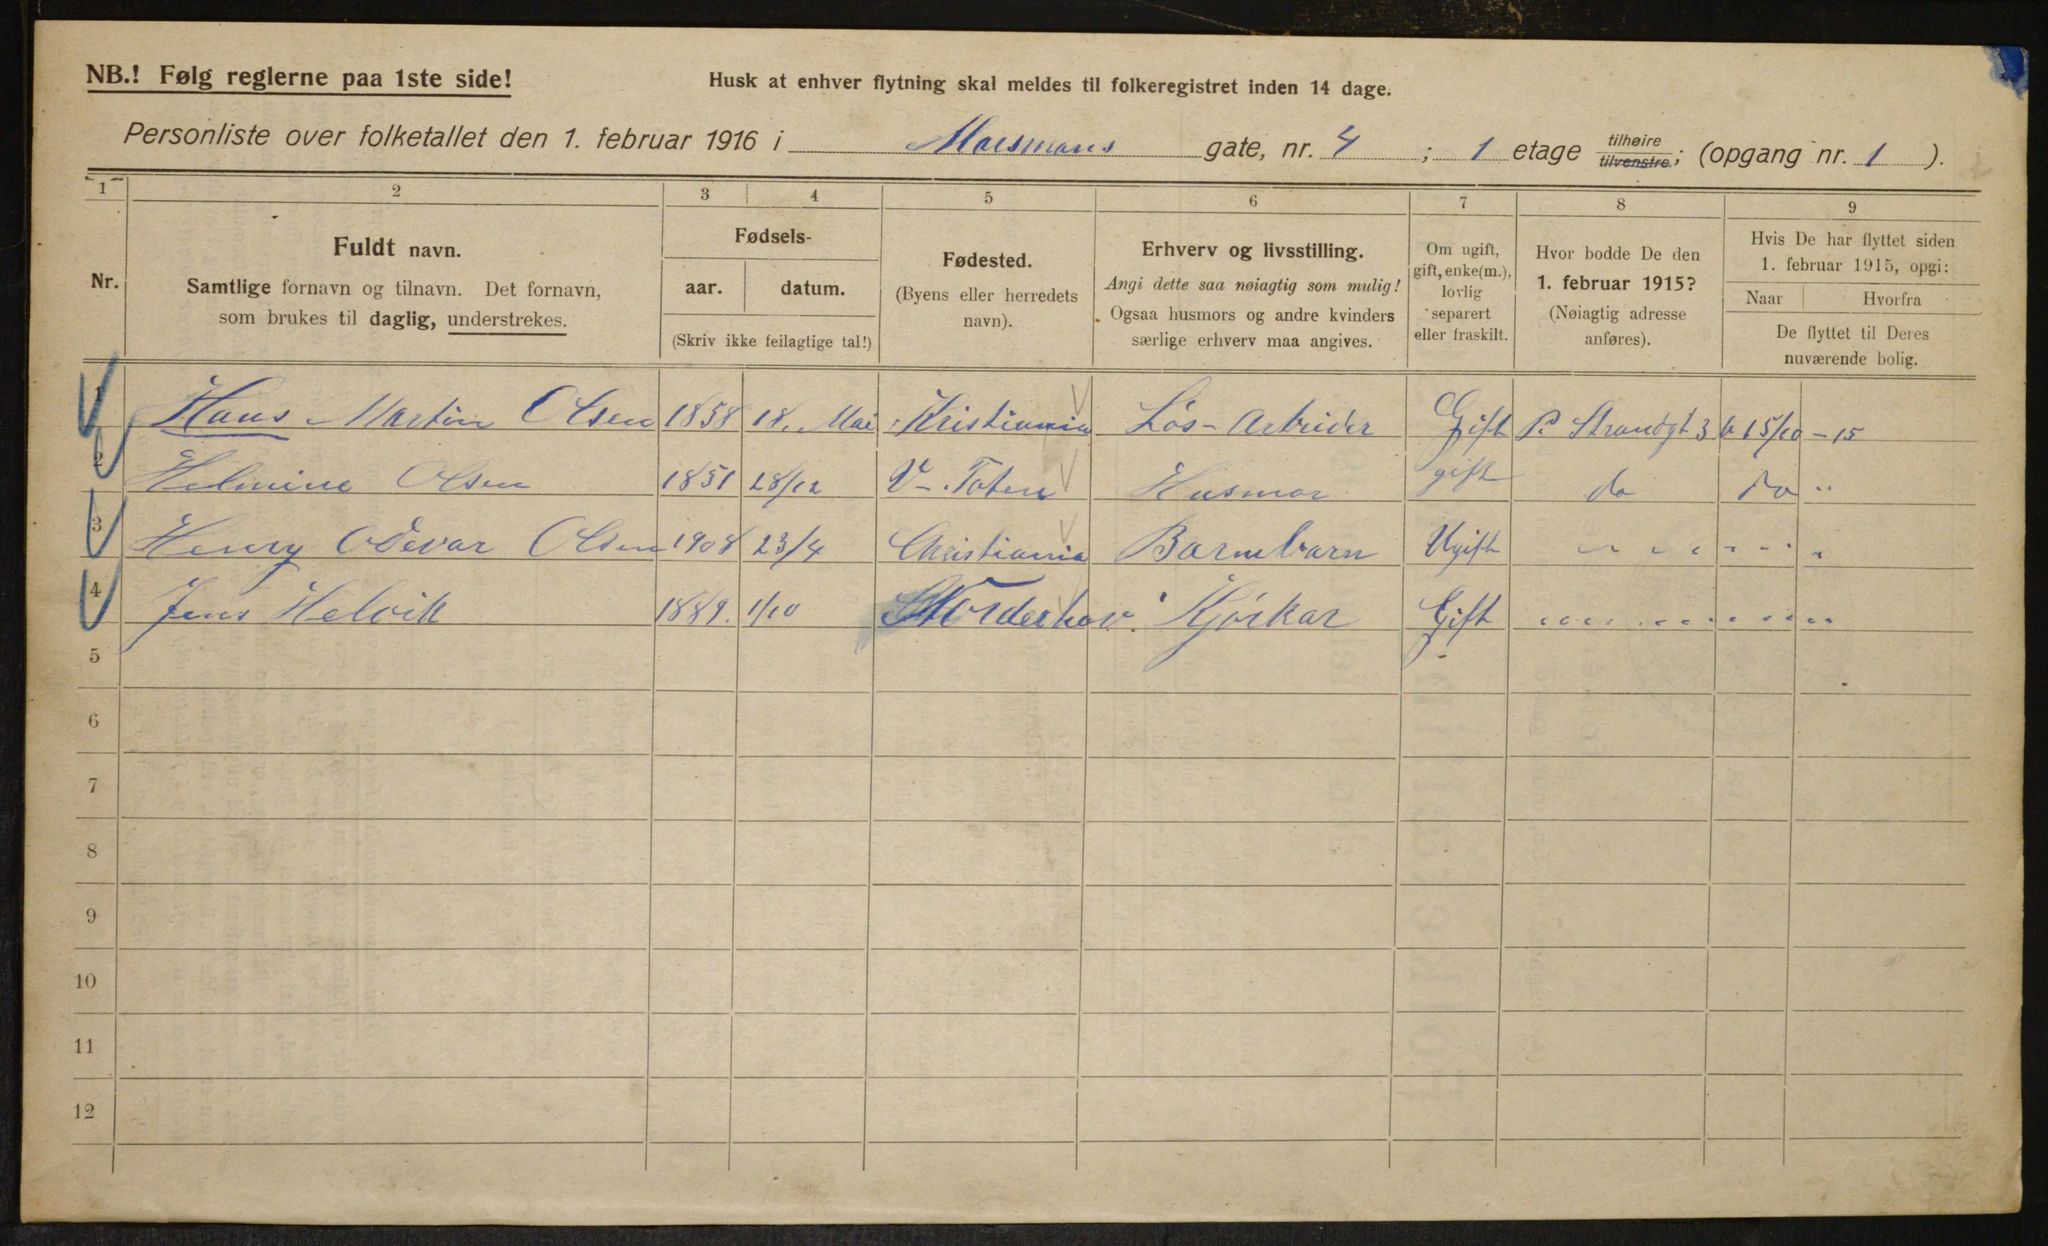 NB.! Følg reglerne paa 1ste side!
Husk at enhver flytning skal meldes til folkeregistret inden 14 dage.
Personliste over folketallet den 1. februar 1916 i Maesmans gate, nr. 4 ; 1 etage tilhøire tilvenstre; (opgang nr. 1 ).
1 2 3 4 5 6 7 8 9
Nr.
Fuldt navn.
Samtlige fornavn og tilnavn. Det fornavn,
som brukes til daglig, understrekes.
Fødsels-
aar. datum.
(Skriv ikke feilagtige tal!)
Fødested.
(Byens eller herredets
navn).
Erhverv og livsstilling.
Angi dette saa nøiagtig som mulig!
Ogsaa husmors og andre kvinders
særlige erhverv maa angives.
Om ugift,
gift, enke(m.),
lovlig
separert
eller fraskilt.
Hvor bodde De den
1. februar 1915?
(Nøiagtig adresse
anføres).
Hvis De har flyttet siden
1. februar 1915, opgi:
Naar Hvorfra
De flyttet til Deres
nuværende bolig.
1 Hans Martin Olsen 1858 18. Mai Kristiania Løs-Arbeider Gift P. Strandgt 36 15/10-15
2 Helmine Olsen 1851 28/12 V-Toten Husmor gift do do "
3 Henry Odevar Olsen 1908 23/4 Christiania Barnebarn Ugift " " " " " " "
4 Jens Helvik 1889. 1/10 Norderhov. Kjørkar Gift " " " " " " " "
5
6
7
8
9
10
11
12